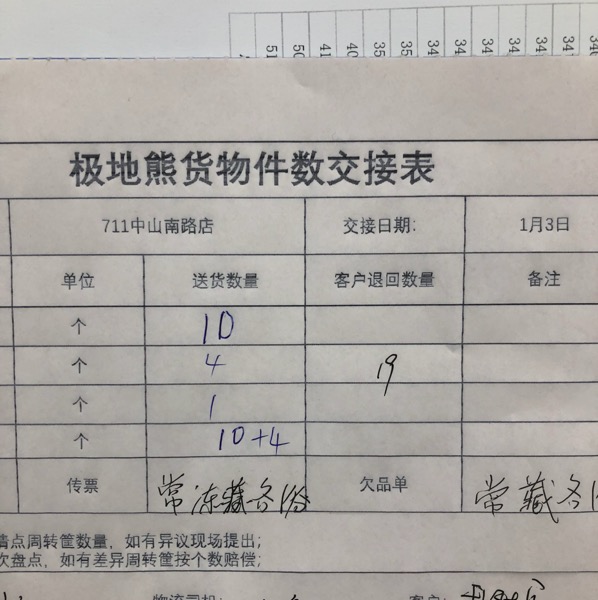 极地熊货物件数交接表
711中山南路店 交接日期: 1月3日
单位 送货数量 客户退回数量 备注
个 10
个 4 19
个 1
个 10+4
传票 常冻藏各1份 欠品单 常藏各1
清点周转筐数量，如有异议现场提出;
次盘点，如有差异周转筐按个数赔偿;
物流司机: 客户: